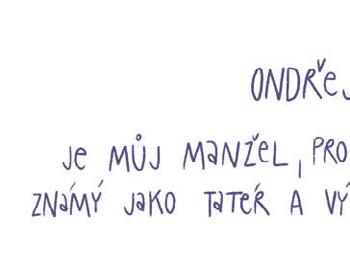 ONDŘEJ
JE MŮJ MANŽEL, PRO
ZNÁMÝ JAKO TATÉŘ A VÝ